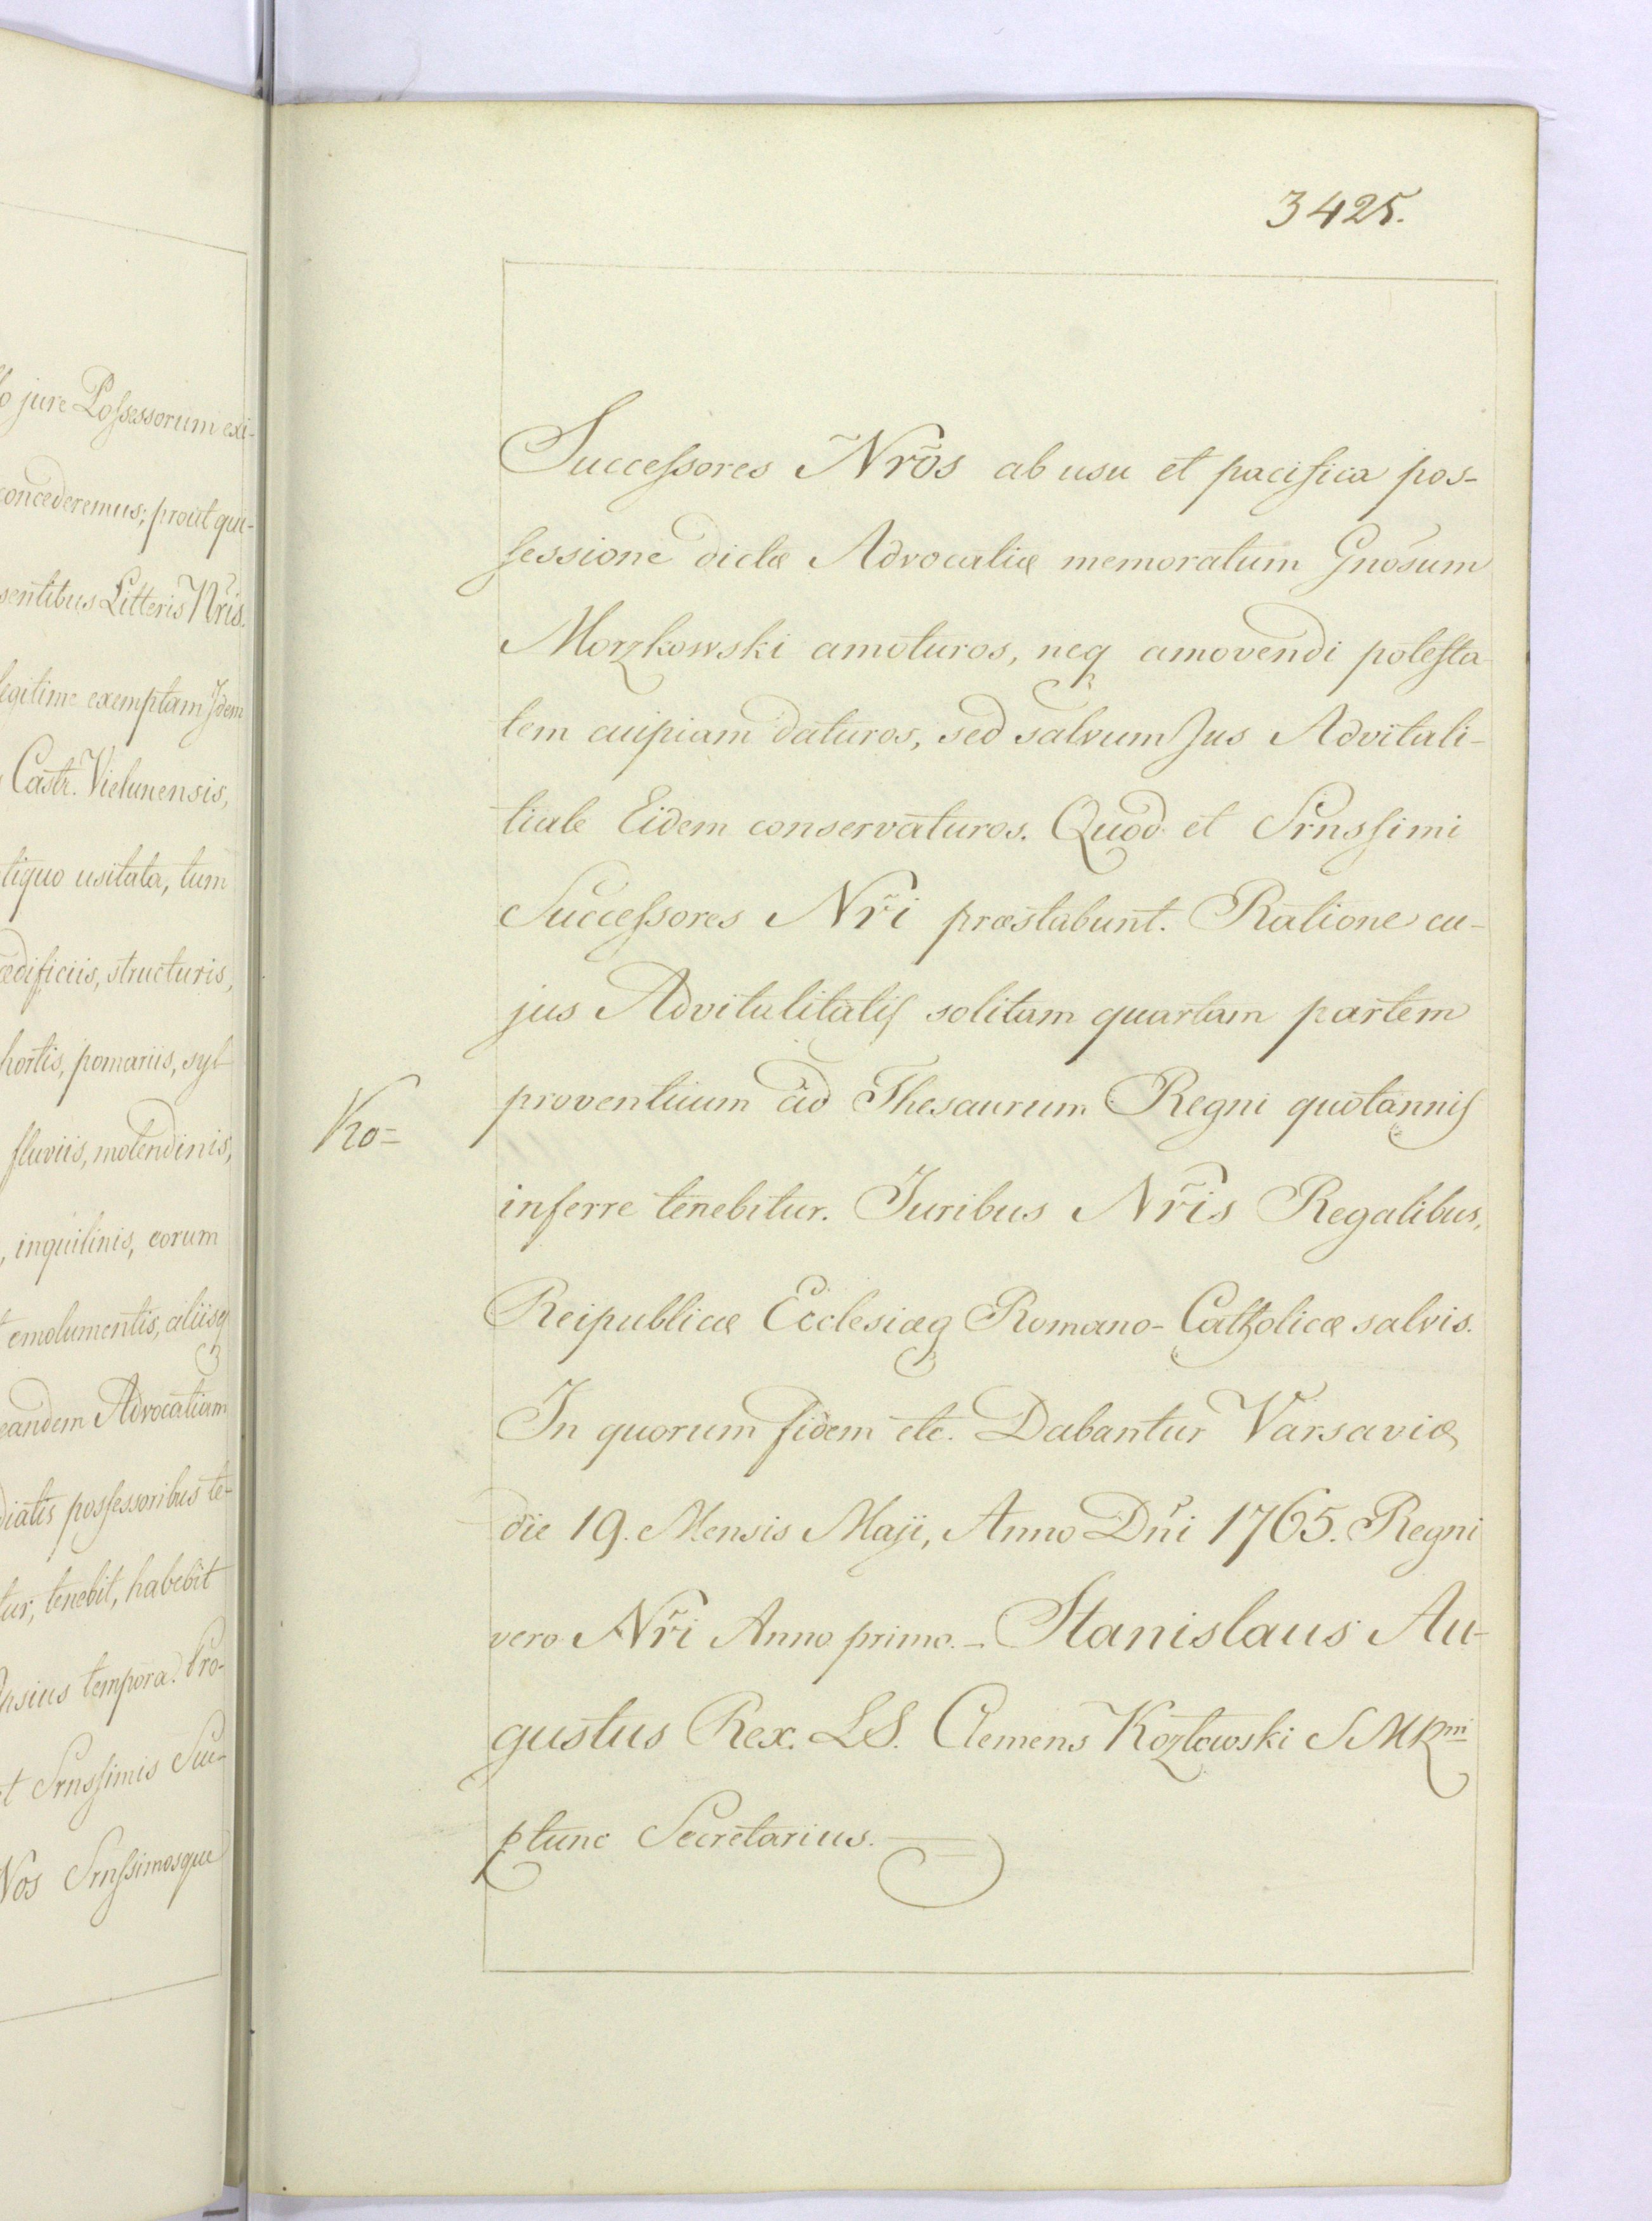 o jure Possessorum exi-
concederemus; prout qui-
sentibus Litteris Nris.
legitime exemptam Idem
Castr. Vielunensis,
tiquo usitata, tum
ædificiis, structuris,
hortis, pomariis, syl-
fluviis, molendinis,
, inquilinis, eorum
emolumentis, aliisq
eandem Advocatiam
diatis possessoribus te-
tur, tenebit, habebit
ipsius tempora. Pro-
t Srnssimis Suc-
Nos Srnssimosque
3425.
Successores Nrõs ab usu et pacifica pos-
sessione dictæ Advocatiæ memoratum Gnosum
Morzkowski amoturos, neq amovendi potesta
tem cuipiam daturos, sed salvum Jus Advitali-
tiale Eidem conservaturos. Quod et Srnssimi
Successores Nr̃i præstabunt. Ratione cu-
jus Advitalitatis solitam quartam partem
proventuum ad Thesaurum Regni quotannis
Ko=
inferre tenebitur. Juribus Nr̃is Regalibus,
Reipublicæ Ecclesiæq Romano-Catholicæ salvis.
In quorum fidem etc. Dabantur Varsaviæ
die 19. Mensis Maji, Anno Dñi 1765. Regni
vero Nr̃i Anno primo. - Stanislaus Au-
gustus Rex. LS. Clemens Kozłowski SMRmi
ptunc Secretarius.